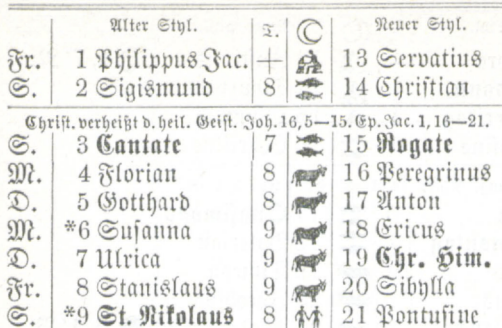 Alter Styl. T. ☾ Neuer Styl.
Fr. 1 Philippus Jac. + 13 Servatius
S. 2 Sigismund 8 14 Christian
Christ. verheißt d. heil. Geist. Joh. 16, 5—15. Ep. Jac. 1, 16—21.
S. 3 Cantate 7 15 Rogate
M. 4 Florian 8 16 Peregrinus
D. 5 Gotthard 8 17 Anton
M. *6 Susanna 9 18 Ericus
D. 7 Ulrica 9 19 Chr. Him.
Fr. 8 Stanislaus 9 20 Sibylla
S. *9 St. Nikolaus 8 21 Pontusine